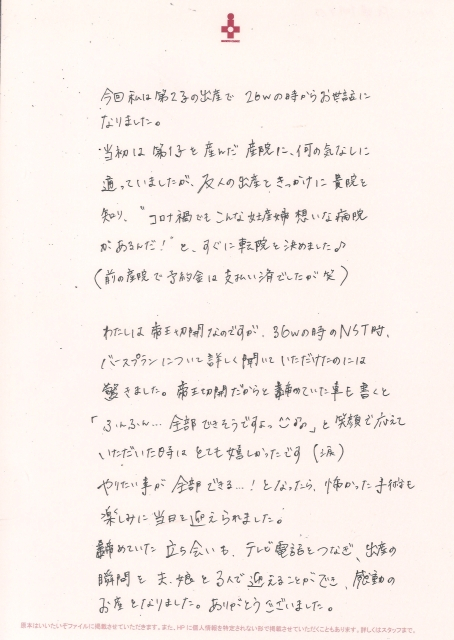 今回私は第2子の出産で 26wの時からお世話に
なりました。
当初は第1子を産んだ産院に、何の気なしに
通っていましたが、友人の出産をきっかけに貴院を
知り、“コロナ禍でもこんな妊産婦想いな病院
があるんだ!”と、すぐに転院を決めました♪
(前の産院で予約金は支払い済でしたが笑)
わたしは帝王切開なのですが、36wの時のNST時、
バースプランについて詳しく聞いていただけたのには
驚きました。帝王切開だからと諦めていた事も書くと
「ふんふん… 全部できそうですよっ」と笑顔で応えて
いただいた時は とても嬉しかったです(涙)
やりたい事が 全部できる…!となったら、怖かった手術も
楽しみに当日を迎えられました。
諦めていた立ち会いも、テレビ電話をつなぎ、出産の
瞬間を夫、娘と3人で迎えることができ、感動の
お産となりました。ありがとうございました。
原本はいいたいぞファイルに掲載させていただきます。また、HPに個人情報を特定されない形で掲載させていただくこともあります。詳しくはスタッフまで。